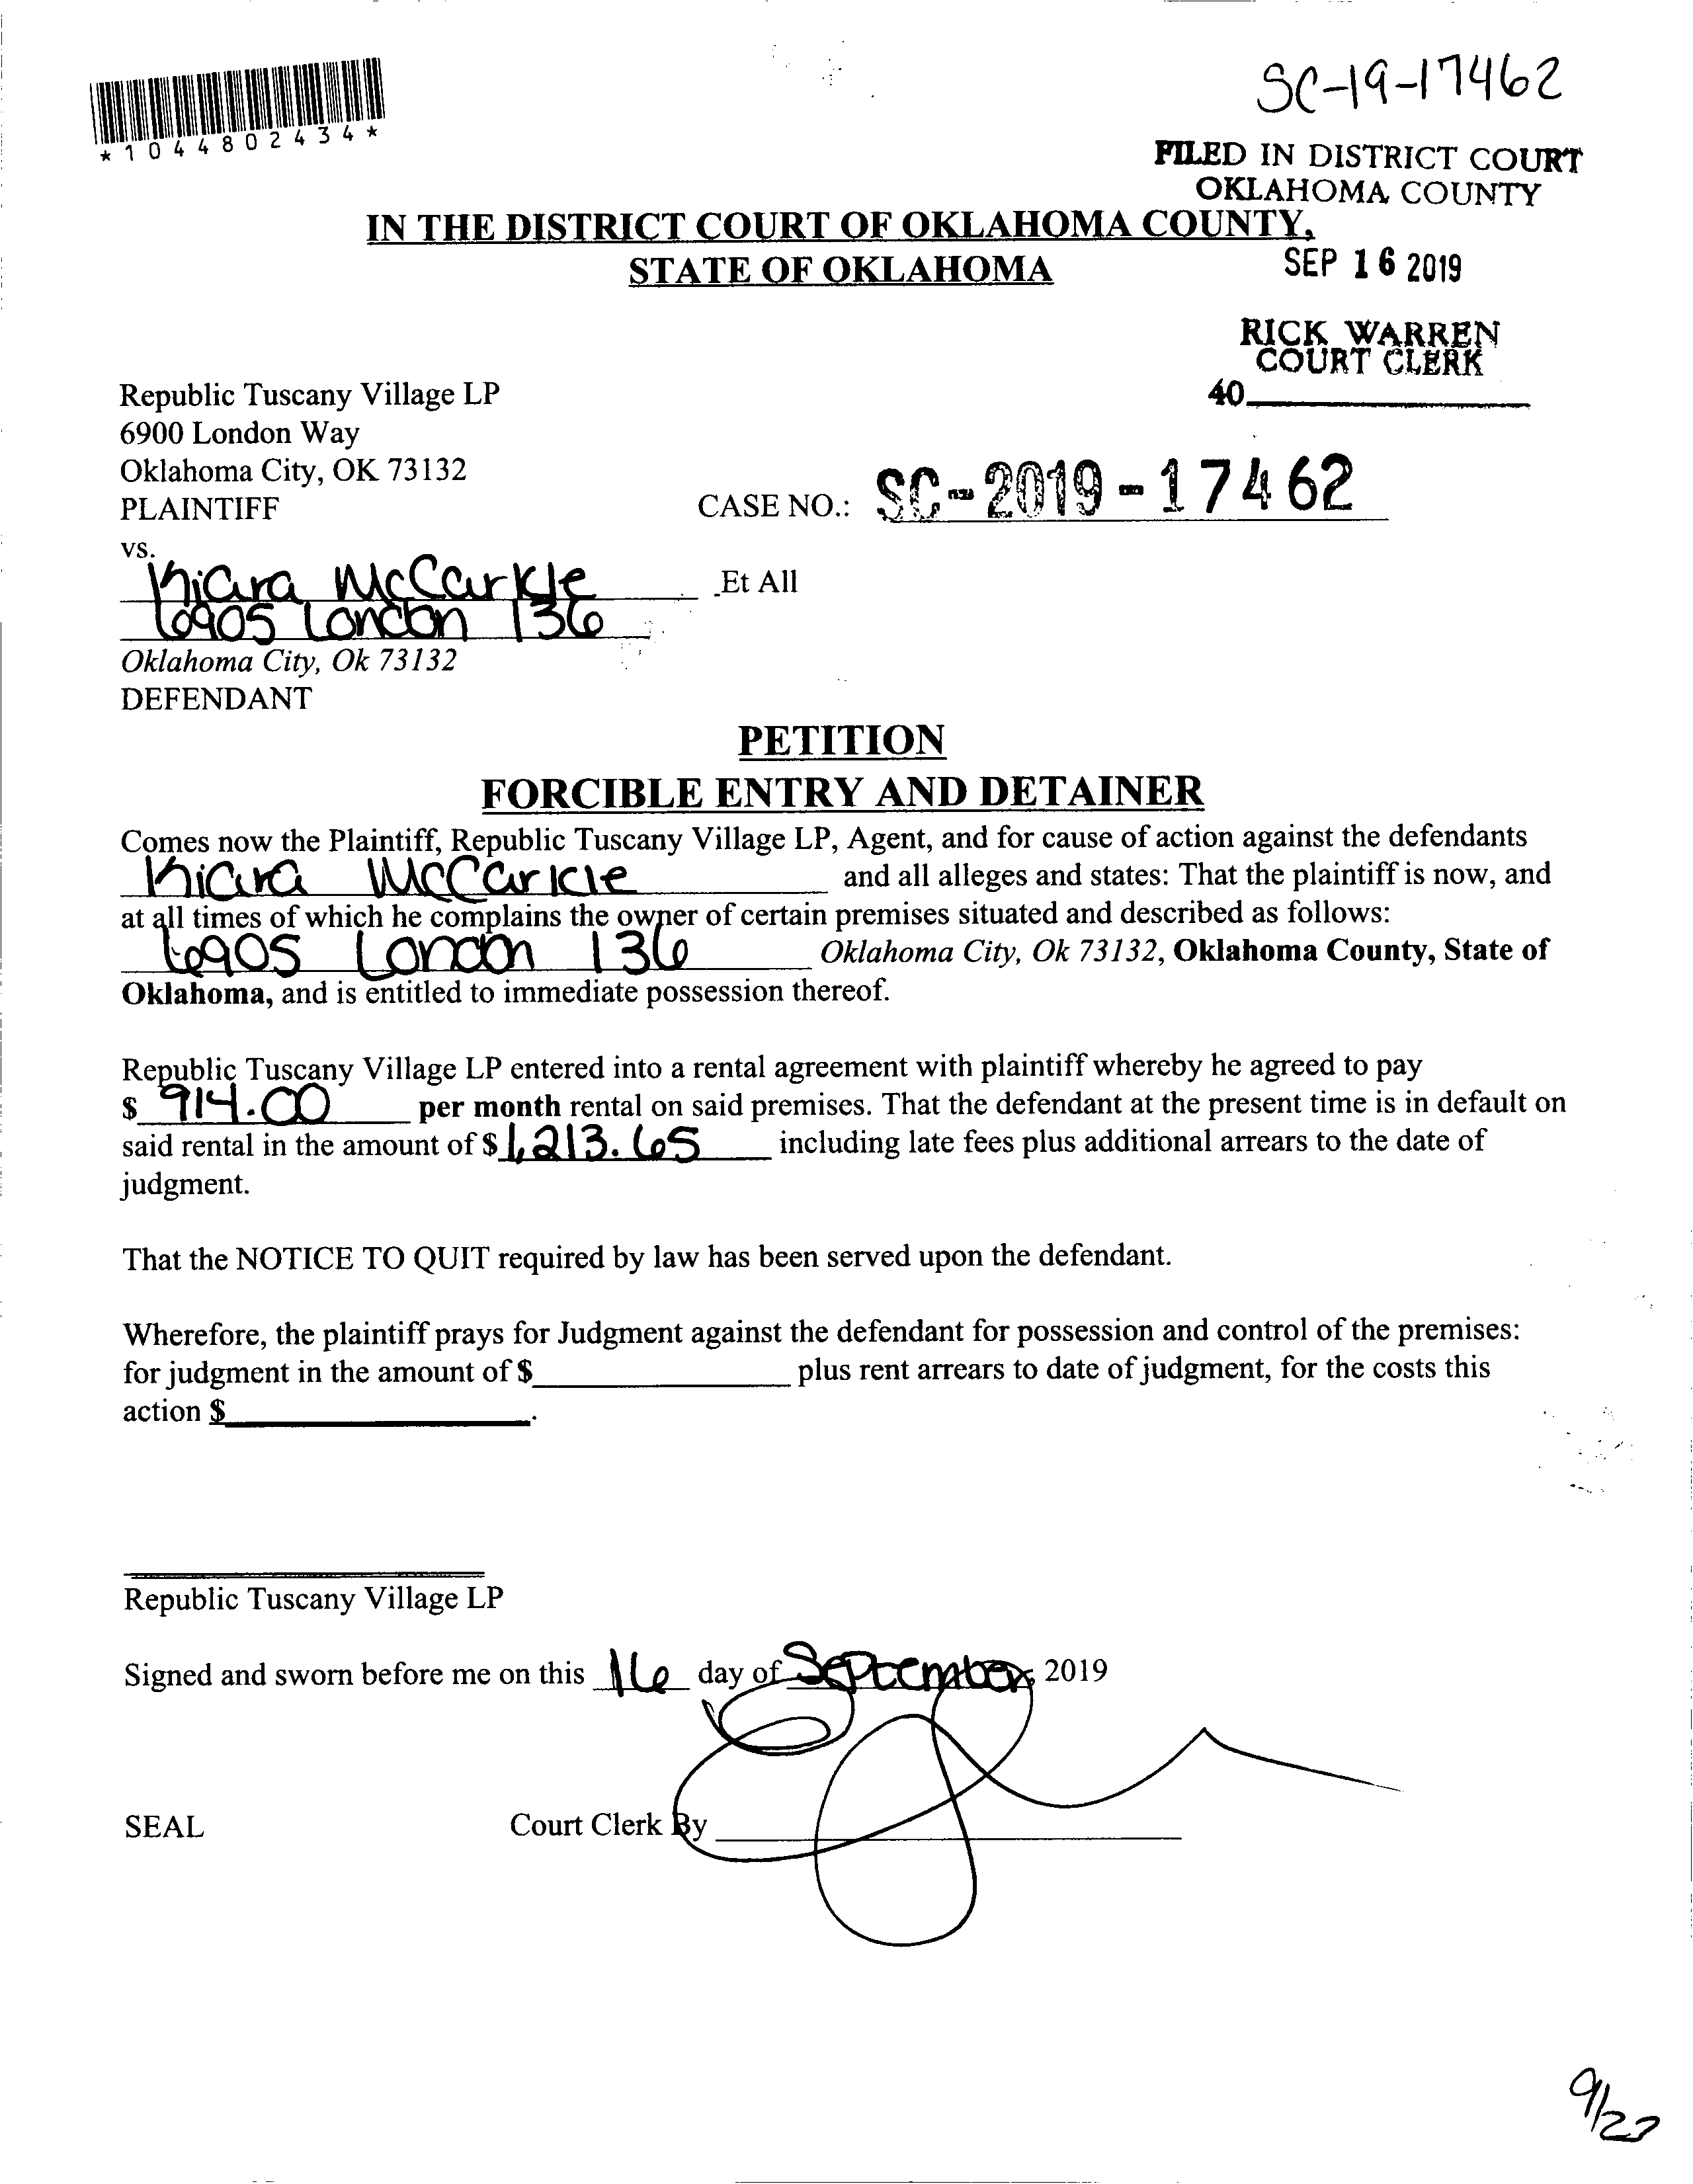 SC-19-17462
*1044802434*
FILED IN DISTRICT COURT
OKLAHOMA COUNTY
IN THE DISTRICT COURT OF OKLAHOMA COUNTY,
STATE OF OKLAHOMA
SEP 16 2019
RICK WARREN
COURT CLERK
40
Republic Tuscany Village LP
6900 London Way
Oklahoma City, OK 73132
PLAINTIFF
CASE NO.: SC-2019-17462
vs.
Kiara McCarkle Et All
6905 London 136
Oklahoma City, Ok 73132
DEFENDANT
PETITION
FORCIBLE ENTRY AND DETAINER
Comes now the Plaintiff, Republic Tuscany Village LP, Agent, and for cause of action against the defendants
Kiara McCarkle and all alleges and states: That the plaintiff is now, and
at all times of which he complains the owner of certain premises situated and described as follows:
6905 London 136 Oklahoma City, Ok 73132, Oklahoma County, State of
Oklahoma, and is entitled to immediate possession thereof.
Republic Tuscany Village LP entered into a rental agreement with plaintiff whereby he agreed to pay
$ 914.00 per month rental on said premises. That the defendant at the present time is in default on
said rental in the amount of $ 1,213.65 including late fees plus additional arrears to the date of
judgment.
That the NOTICE TO QUIT required by law has been served upon the defendant.
Wherefore, the plaintiff prays for Judgment against the defendant for possession and control of the premises:
for judgment in the amount of $ plus rent arrears to date of judgment, for the costs this
action $ .
Republic Tuscany Village LP
Signed and sworn before me on this 16 day of September, 2019
SEAL Court Clerk By
9/27